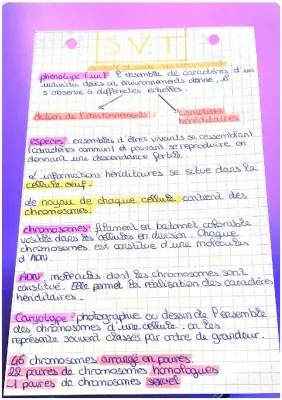 SVT
phénotype (un) l'ensemble de caractères d'un
individu dans un environnements donné, il
s'observe à différentes échelles.
Action de l'environnements
Caractères
héréditaires
espèces: ensembles d'êtres vivants se ressemblant
(caractères commun) et pouvant se reproduire en
donnant une descendance fertile.
informations héréditaires se situe dans la
cellule œuf.
de noyau de chaque cellule contient des
chromosomes.
chromosomes: filament en batonnet colorable
visible dans les cellules en division. Chaque
chromosomes est constitué d'une molécules
d'ADN.
ADN: molécules dont les chromosomes sont
constitué. Elle permet la réalisation des caractères
héréditaires.
Caryotype: photographie ou dessin de l'ensemble
des chromosomes d'une cellule. on les
représente souvent classés par ordre de grandeur.
46 chromosomes arrangé en paires.
22 paires de chromosomes homologues
1 paires de chromosomes sexuel